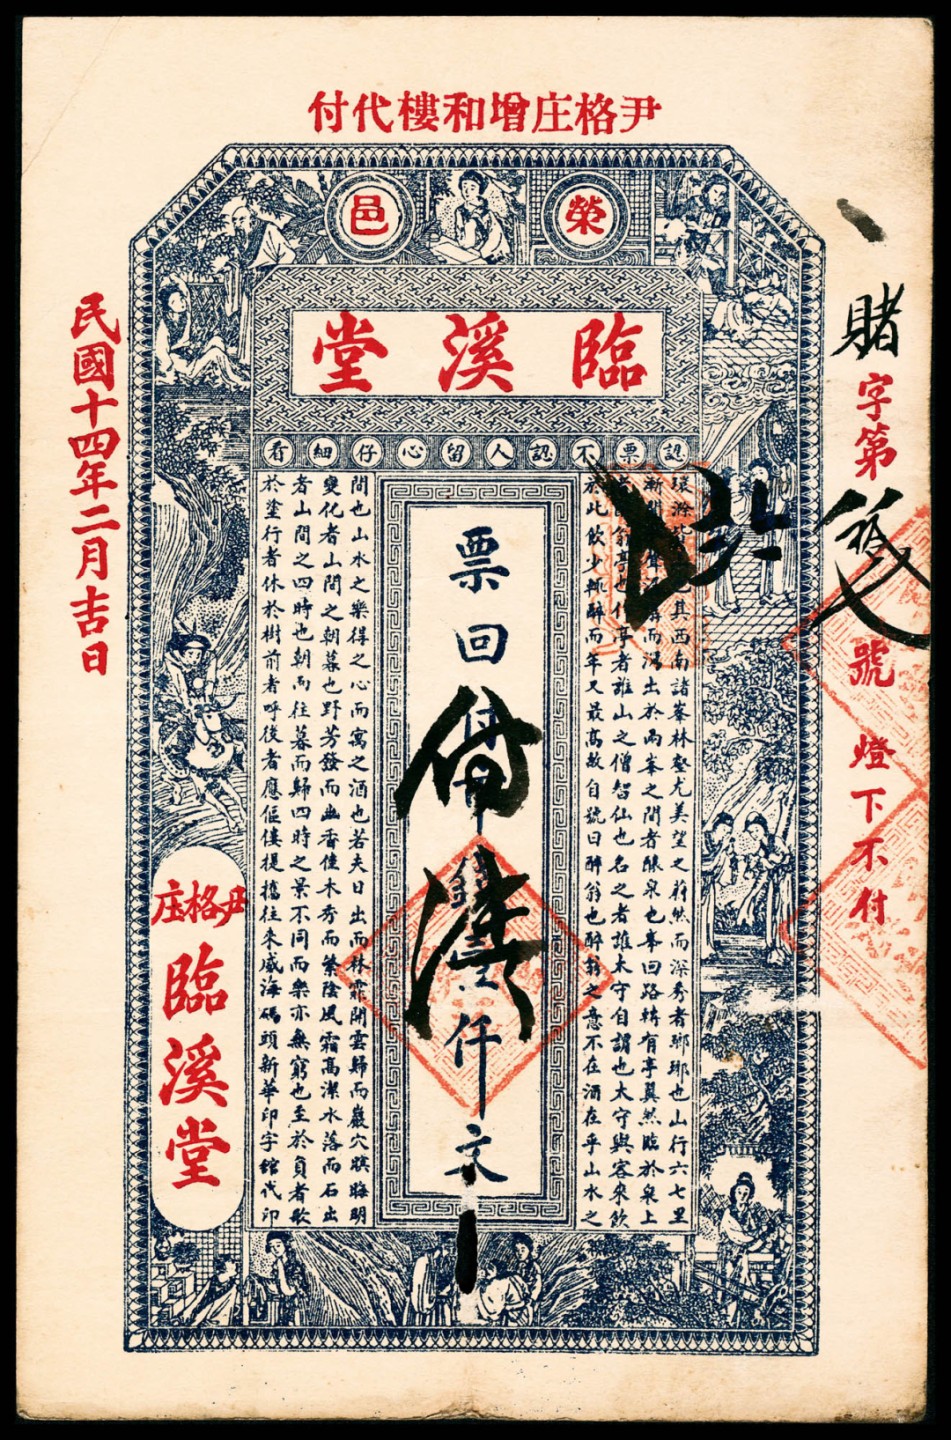 尹格庄增和樓代付
榮邑
臨溪堂
認票不認人留心仔細看
賭字第
號
燈下不付
環滁其西南諸峯林壑尤美望之蔚然而深秀者瑯琊也山行六七里
漸聞而瀉出於兩峯之間者釀泉也峯回路轉有亭翼然臨於泉上
翁亭也作亭者誰山之僧智仙也名之者誰太守自謂也太守與客來飲
於此飲少輒醉而年又最高故自號曰醉翁也醉翁之意不在酒在乎山水之
票回付
仟文
間也山水之樂得之心而寓之酒也若夫日出而林霏開雲歸而巖穴暝晦明
變化者山間之朝暮也野芳發而幽香佳木秀而繁陰風霜高潔水落而石出
者山間之四時也朝而往暮而歸四時之景不同而樂亦無窮也至於負者歌
於塗行者休於樹前者呼後者應傴僂提攜往來威海碼頭新華印字館代印
尹格庄
臨溪堂
民國十四年二月吉日